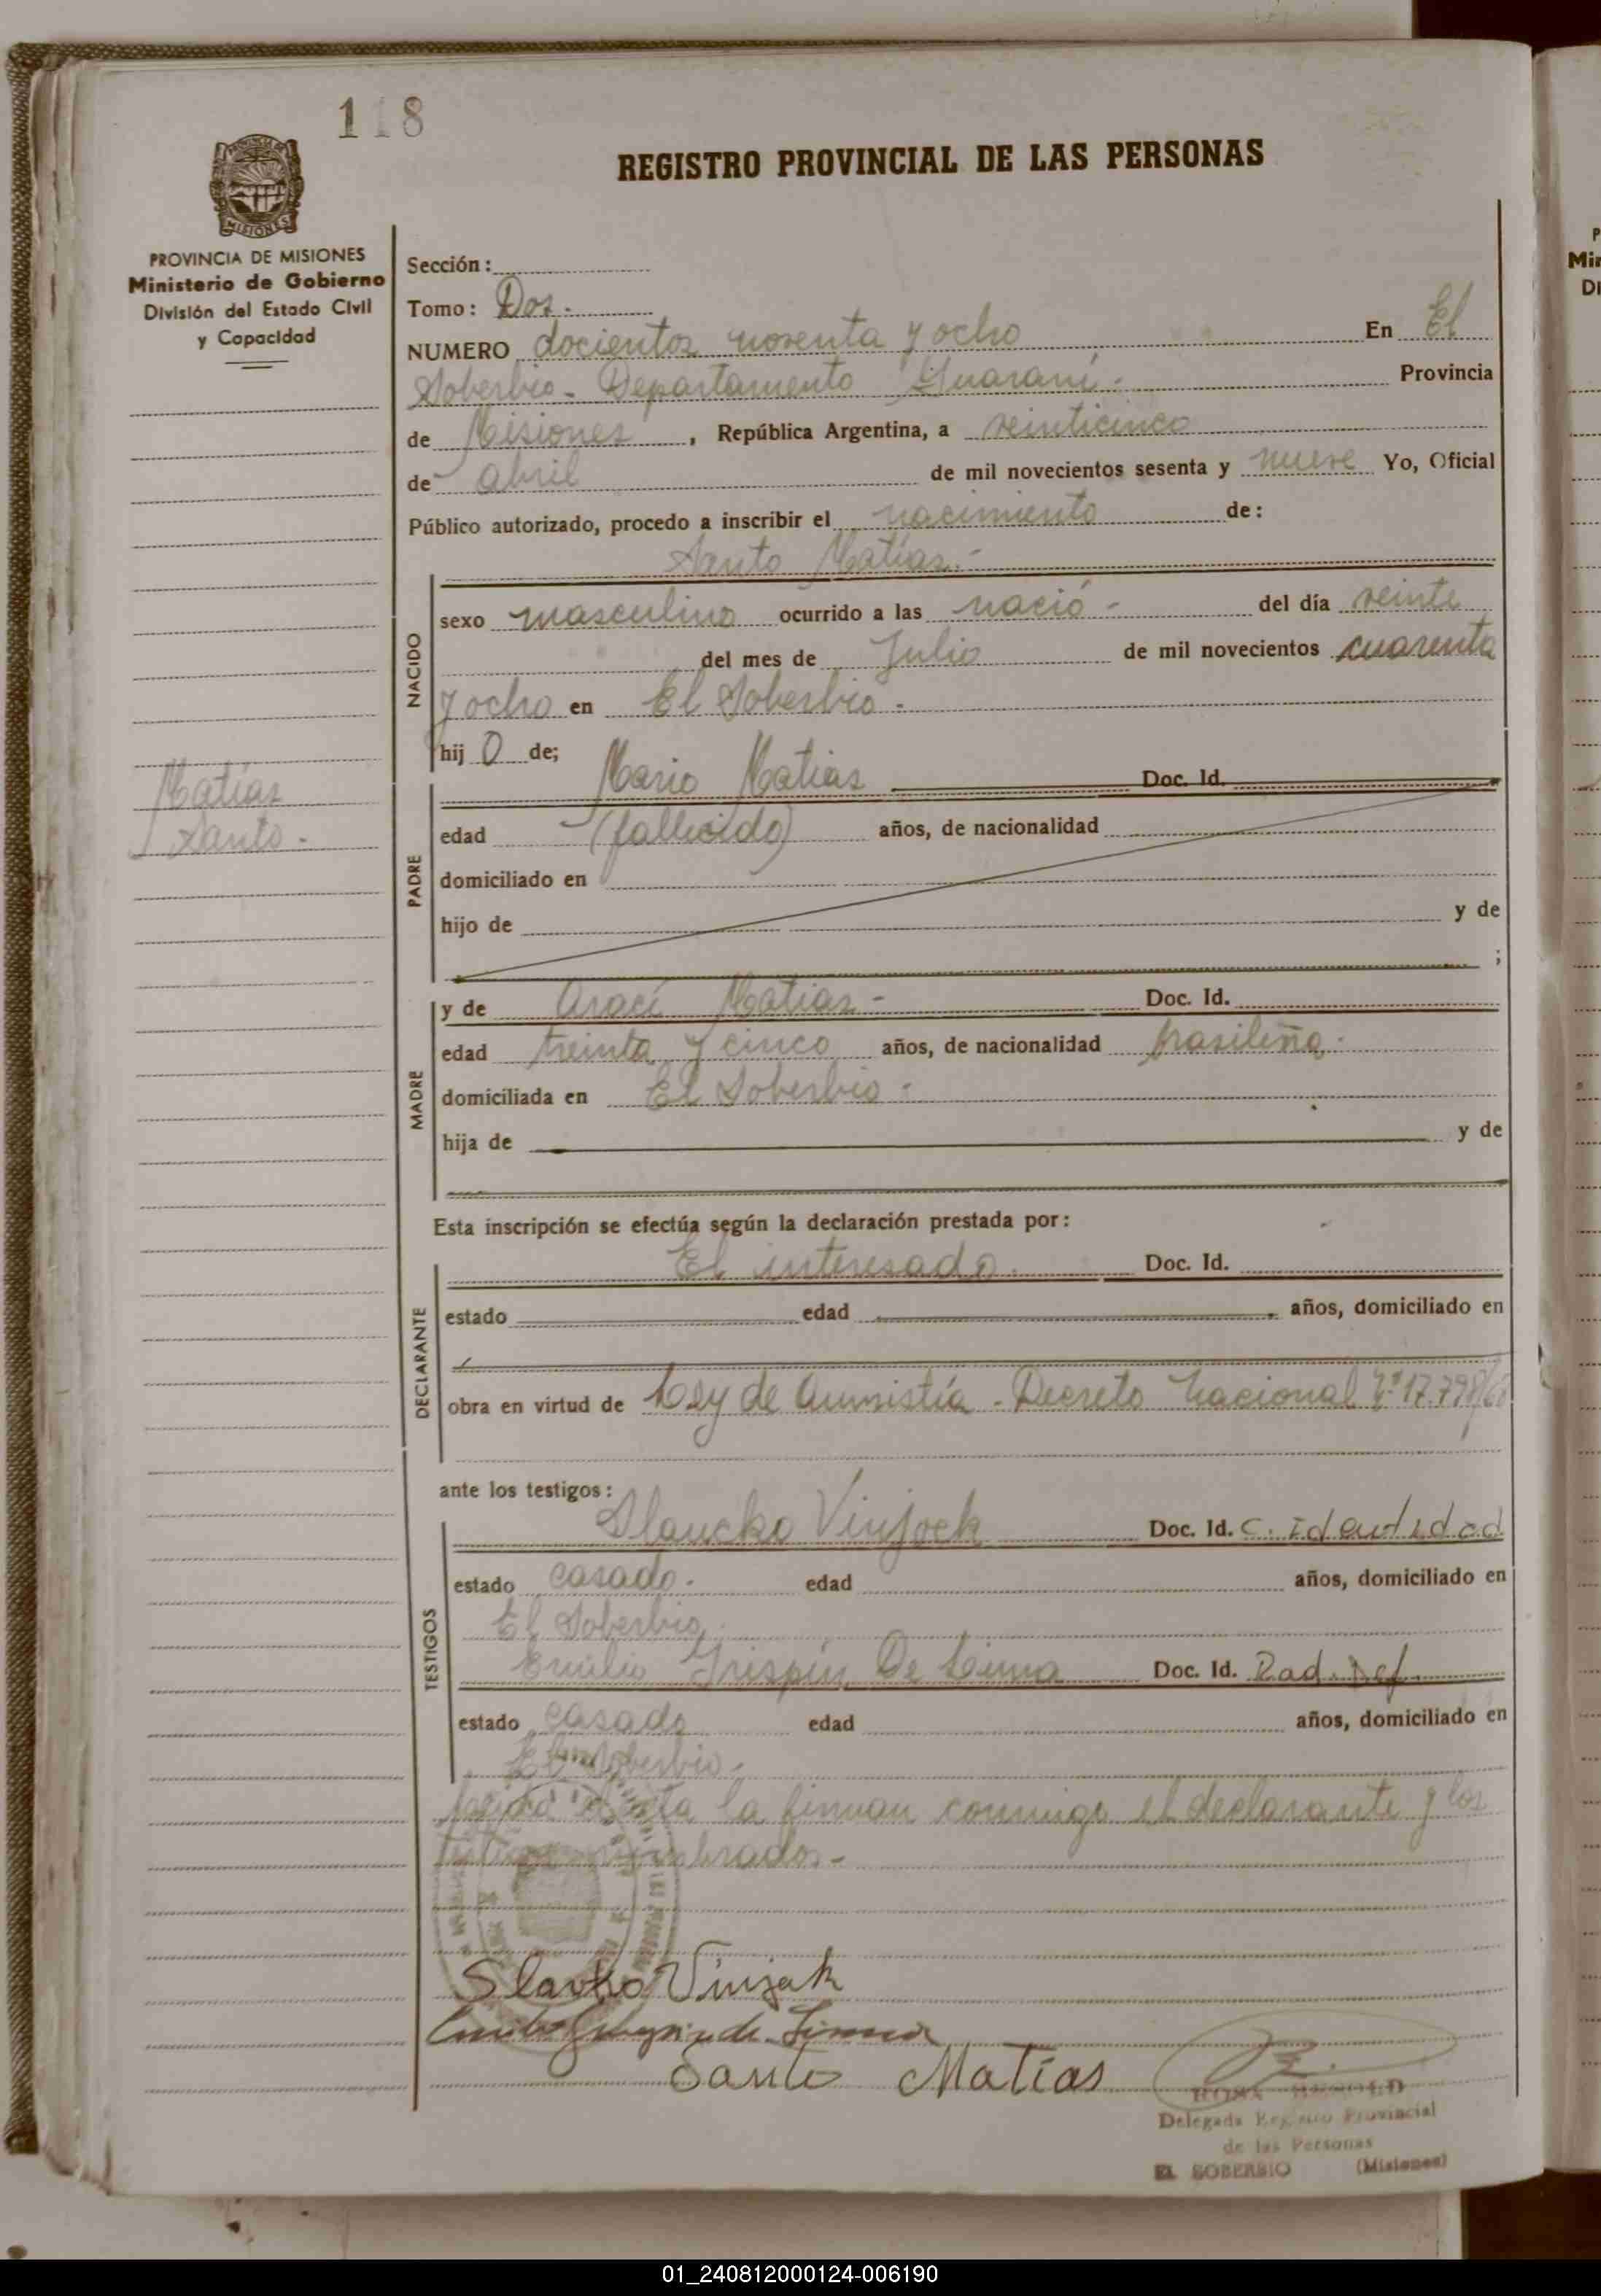 118
REGISTRO PROVINCIAL DE LAS PERSONAS
MISIONES
PROVINCIA DE MISIONES
Ministerio de Gobierno
División del Estado Civil
y Capacidad
Sección:
Tomo: Dos.
NUMERO docientos noventa y ocho En El
Soberbio - Departamento Guaraní - Provincia
de Misiones, República Argentina, a veinticinco
de abril de mil novecientos sesenta y nueve Yo, Oficial
Público autorizado, procedo a inscribir el nacimiento de:
Santo Matías.-
NACIDO
sexo masculino ocurrido a las nació - del día veinte
del mes de Julio de mil novecientos cuarenta
y ocho en El Soberbio -
hij o de;
Matías
Santo -
PADRE
Mario Matias Doc. Id.
edad (fallecido) años, de nacionalidad
domiciliado en
hijo de y de
;
MADRE
y de Araci Matias - Doc. Id.
edad treinta y cinco años, de nacionalidad brasileña.
domiciliada en El Soberbio -
hija de y de
Esta inscripción se efectúa según la declaración prestada por:
DECLARANTE
El interesado. Doc. Id.
estado edad años, domiciliado en
obra en virtud de Ley de Amnistía - Decreto Nacional Nº 17.798/68
ante los testigos:
TESTIGOS
Slaucko Vinjock Doc. Id. C. Identidad
estado casado. edad años, domiciliado en
El Soberbio
Emilio Grispin De Lima Doc. Id. Rad. Def.
estado casado edad años, domiciliado en
El Soberbio -
acta la firman conmigo el declarante y los
testigos nombrados. -
Slavko Vinjak
de Lima
Santo Matías
ROSA
Delegada Registro Provincial
de las Personas
EL SOBERBIO (Misiones)
01_240812000124-006190